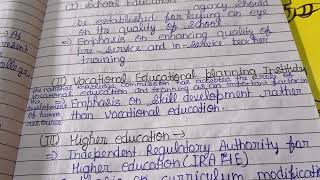 (I) School Education agency should
be established for keeping an eye
on the quality of school
→ Emphasis on enhancing quality of
pre-service and in-service teacher
training
(II) Vocational Educational planning Institute
The national knowledge commission has the area of
vocational education and training as an important factor in
the development
of human
resource
→ Emphasis on skill development rather
than vocational education.
(III) Higher education →
⇒ Independent Regulatory Authority for
Higher education (IRAHE)
on curriculum modification
As
present
college